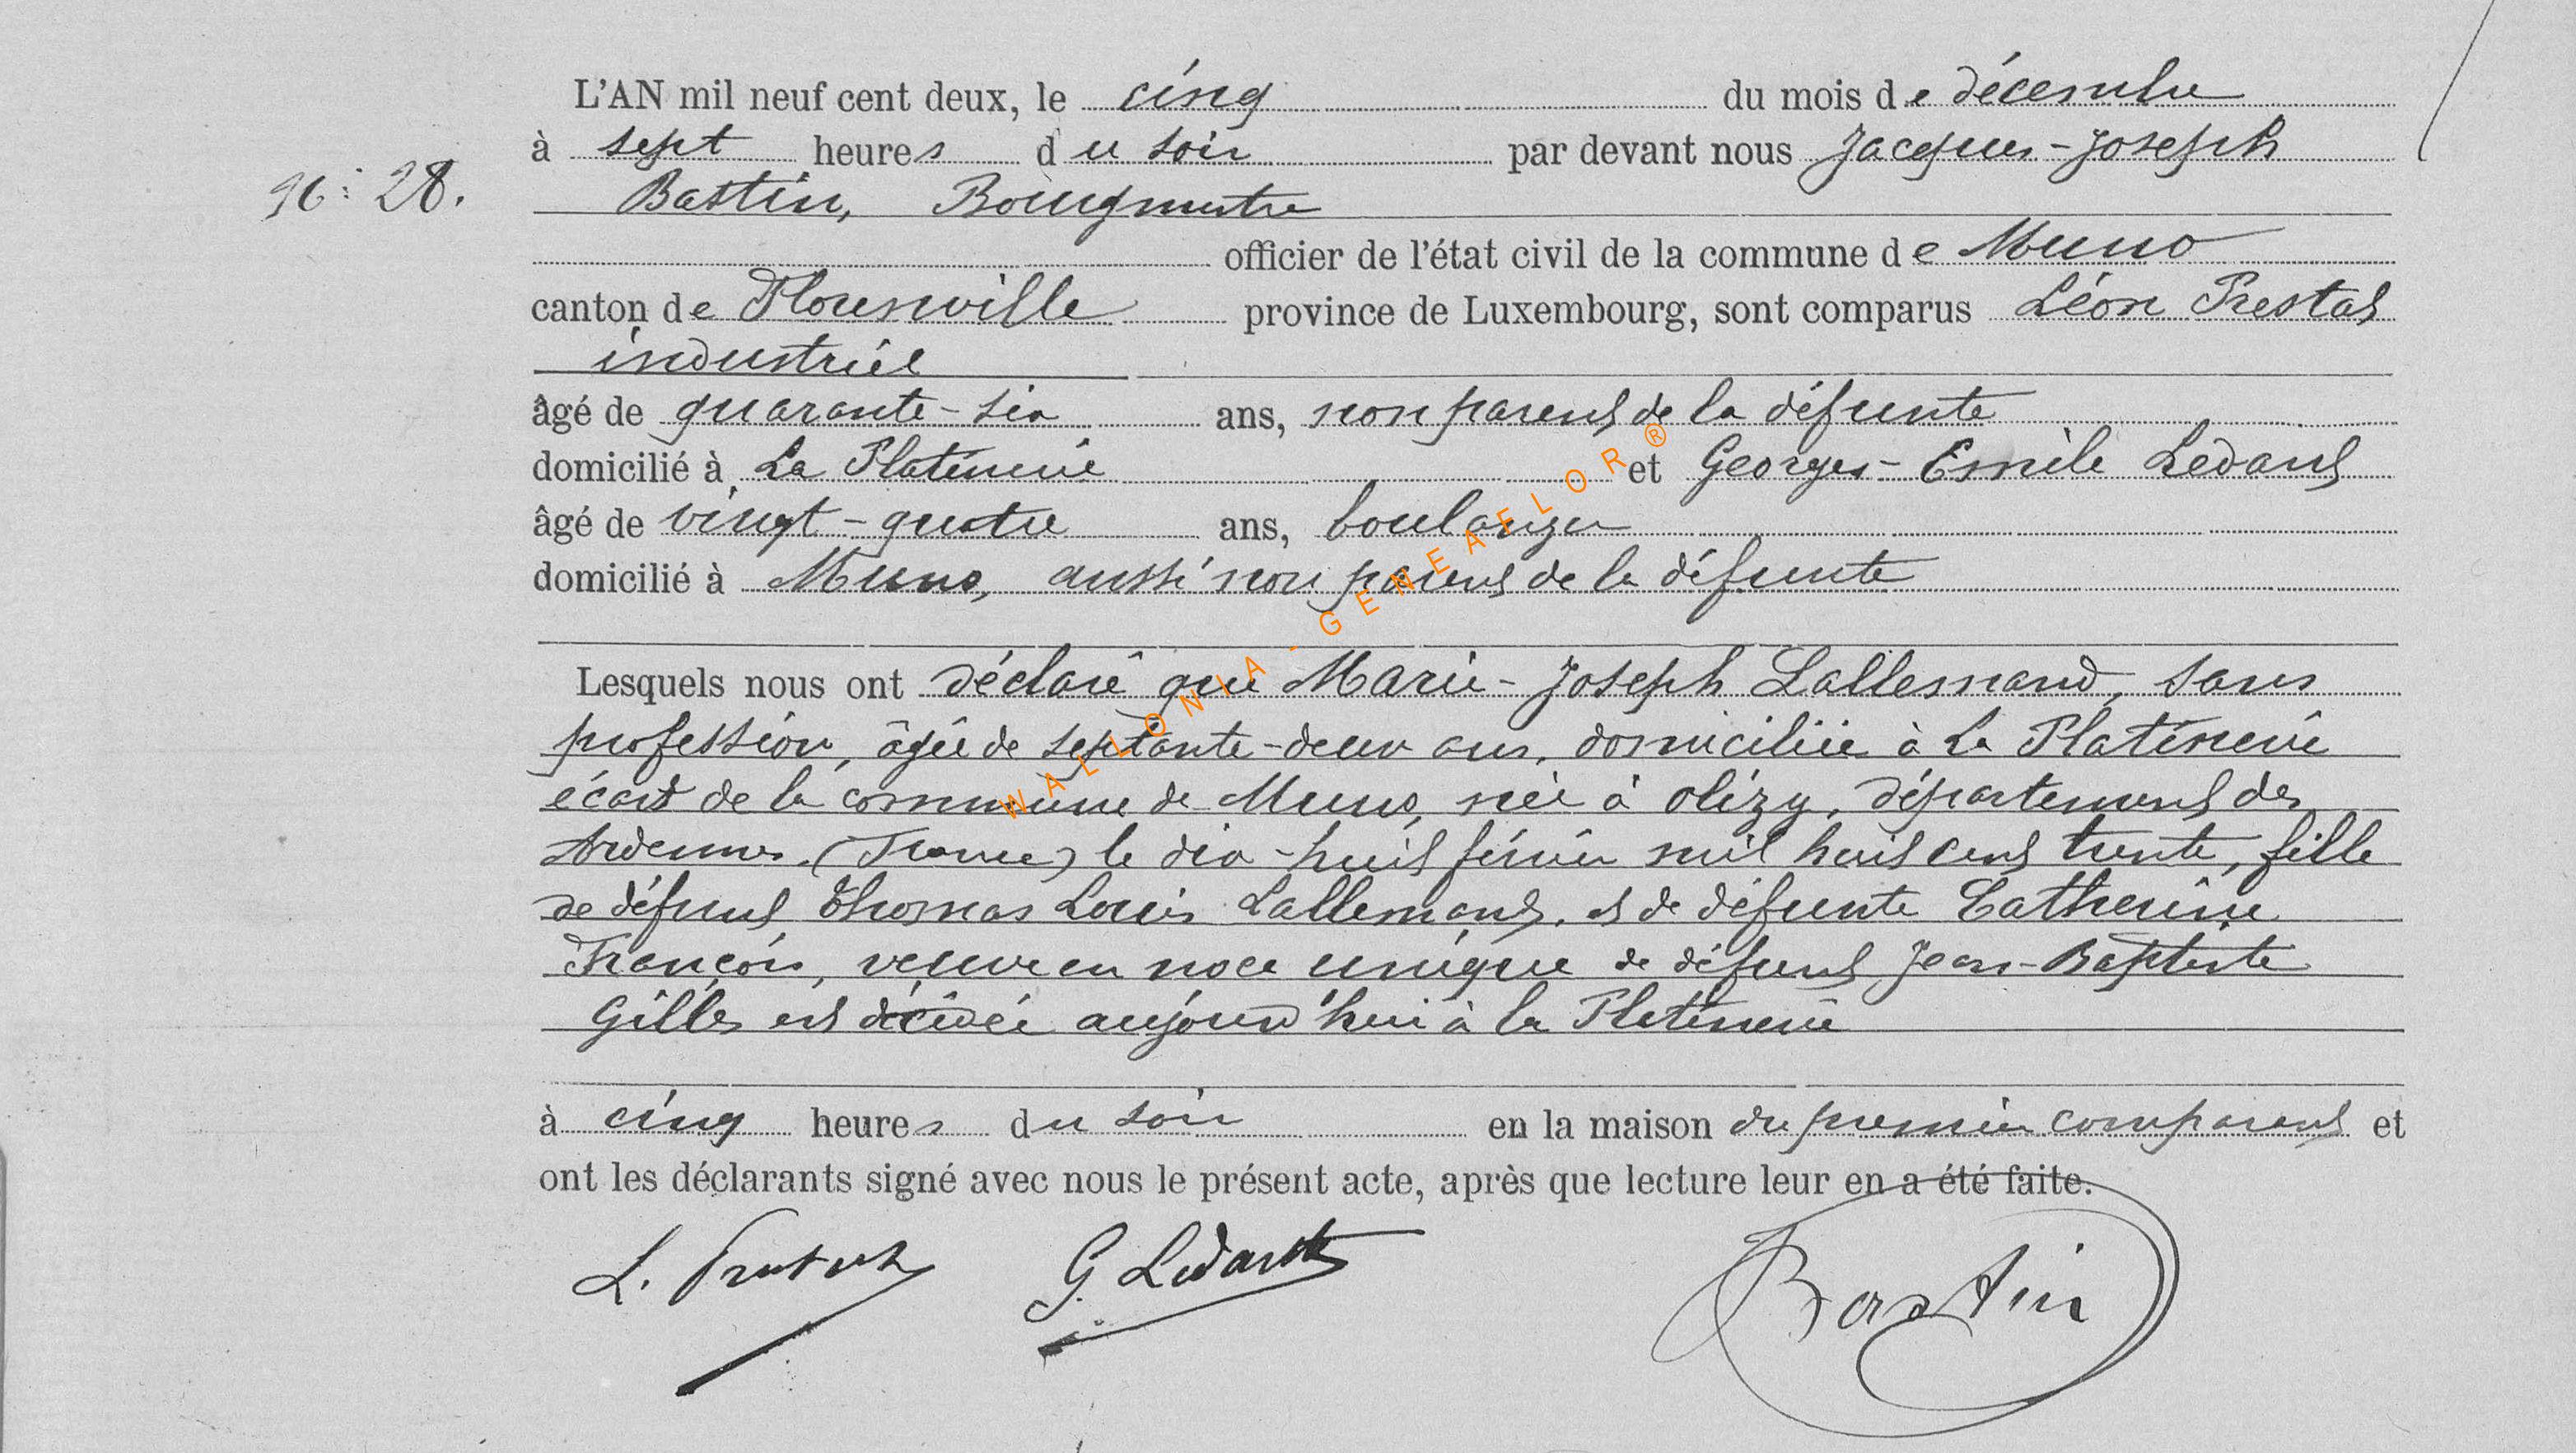 L'AN mil neuf cent deux, le cinq du mois de décembre
à sept heures du soir par devant nous Jacques-Joseph
N° 28.
Bastin, Bourgmestre
officier de l'état civil de la commune de Muno
canton de Florenville province de Luxembourg, sont comparus Léon
industriel
âgé de quarante-six ans, non parent de la défunte
domicilié à La Platinerie et Georges-Emile Ledant
âgé de vingt-quatre ans, boulanger
domicilié à Muno, aussi non parent de la défunte
Lesquels nous ont déclaré que Marie-Joseph Lallemand, sans
profession, âgée de septante-deux ans, domiciliée à La Platinerie
écart de la commune de Muno, née à Olizy, département des
Ardennes (France) le dix-huit février mil huit cent trente, fille
de défunt Thomas Louis Lallemand, et de défunte Catherine
François, veuve en noce unique de défunt Jean-Baptiste
Gilles est décédée aujourd'hui à la Platinerie
à cinq heures du soir en la maison du premier comparant et
ont les déclarants signé avec nous le présent acte, après que lecture leur en a été faite.
L. G. Ledant Bastin
WALLONIA-GENEAFLOR®